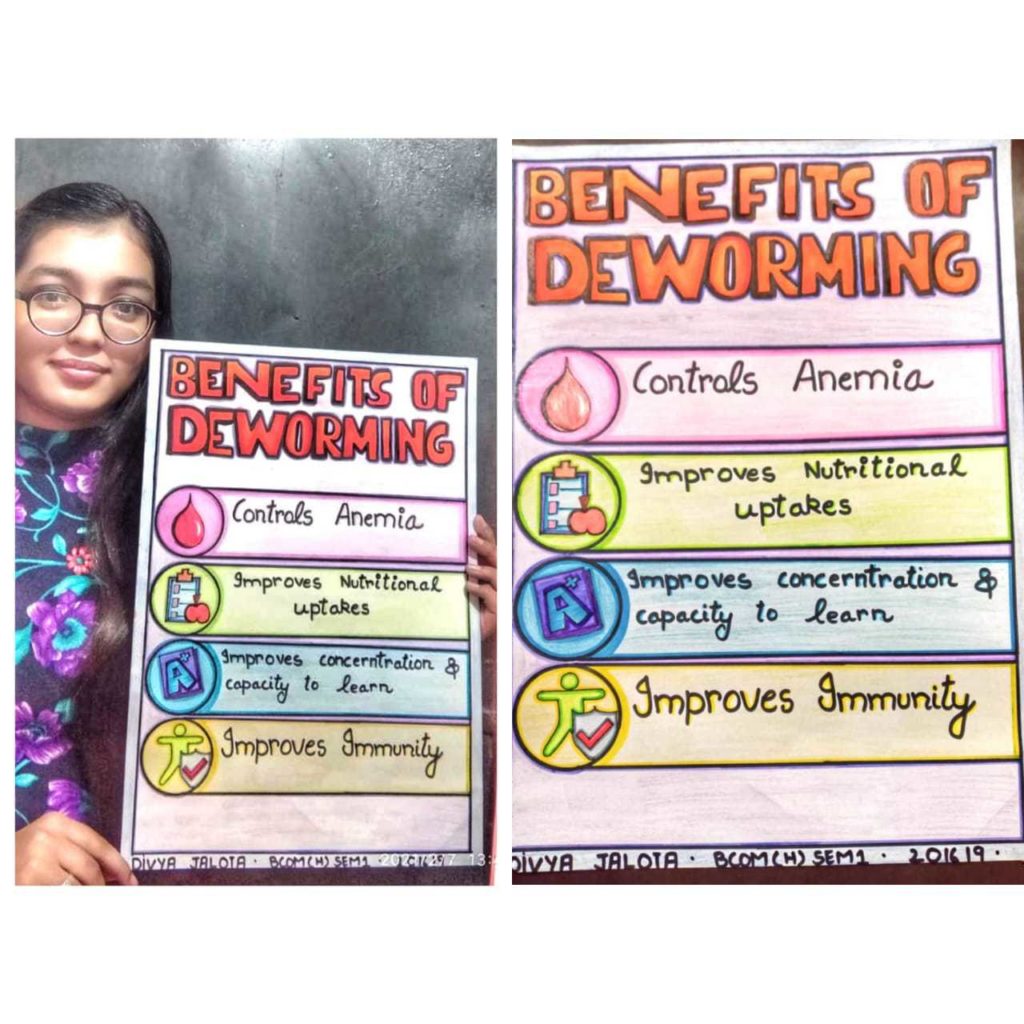 BENEFITS OF
DEWORMING
Controls Anemia
Improves Nutritional
uptakes
Improves concerntration &
capacity to learn
A+
Improves Immunity
DIVYA JALOTA · BCOM(H) SEM1 ·
BENEFITS OF
DEWORMING
Controls Anemia
Improves Nutritional
uptakes
Improves concerntration &
capacity to learn
A+
Improves Immunity
DIVYA JALOTA · BCOM(H) SEM1 · 201619 ·